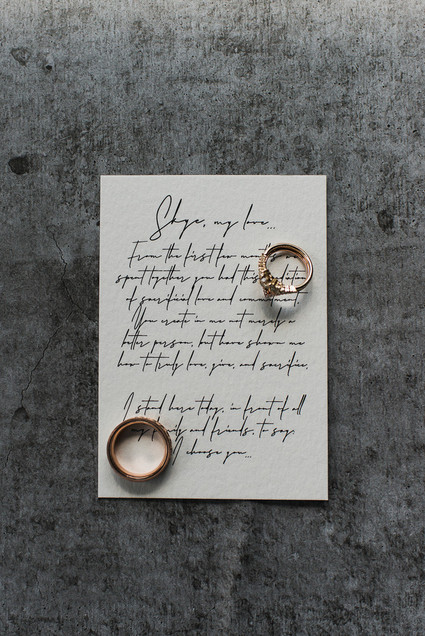 Skye, my love...
From the first few
spent together you had this
of sacrificial love and commitment.
You create in me not merely a
better person, but have shown me
how to truly love, give, and sacrifice.
I stand here today, in front of all
my family and friends, to say,
I choose you...